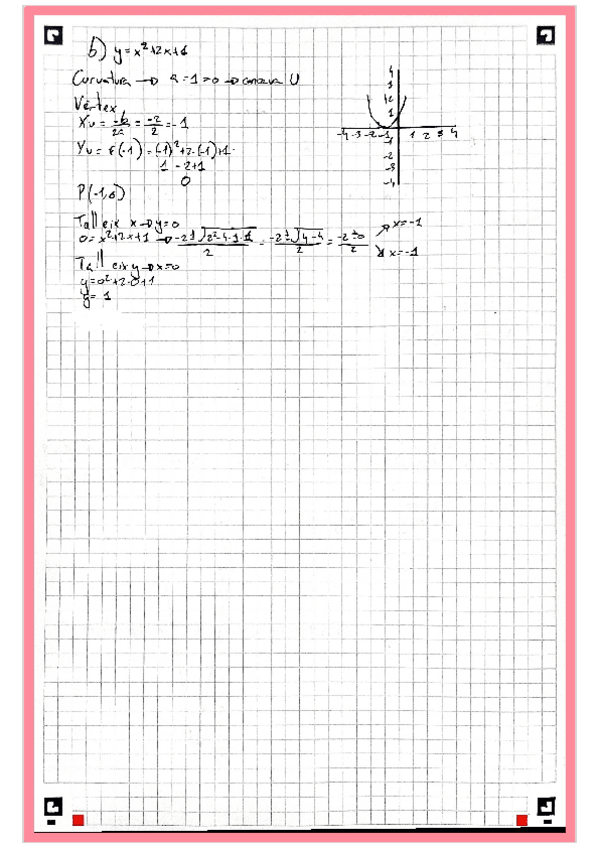 b) y = x²+2x+1
Curvatura → a = 1 = 0 → concava U
Vértex
Xv = -b/2a = -2/2 = -1
Yv = f(-1) = (-1)²+2·(-1)+1
1 -2+1
0
P(-1,0)
Tall eix x → y=0
0= x²+2x+1 → -2±√2²-4·1·1/2 = -2±√4-4/2 = -2±0/2 ↗ x=-1
↘ x=-1
Tall eix y → x=0
y=0²+2·0+1
y= 1
4
3
2
1
-4 -3 -2 -1 1 2 3 4
-1
-2
-3
-4